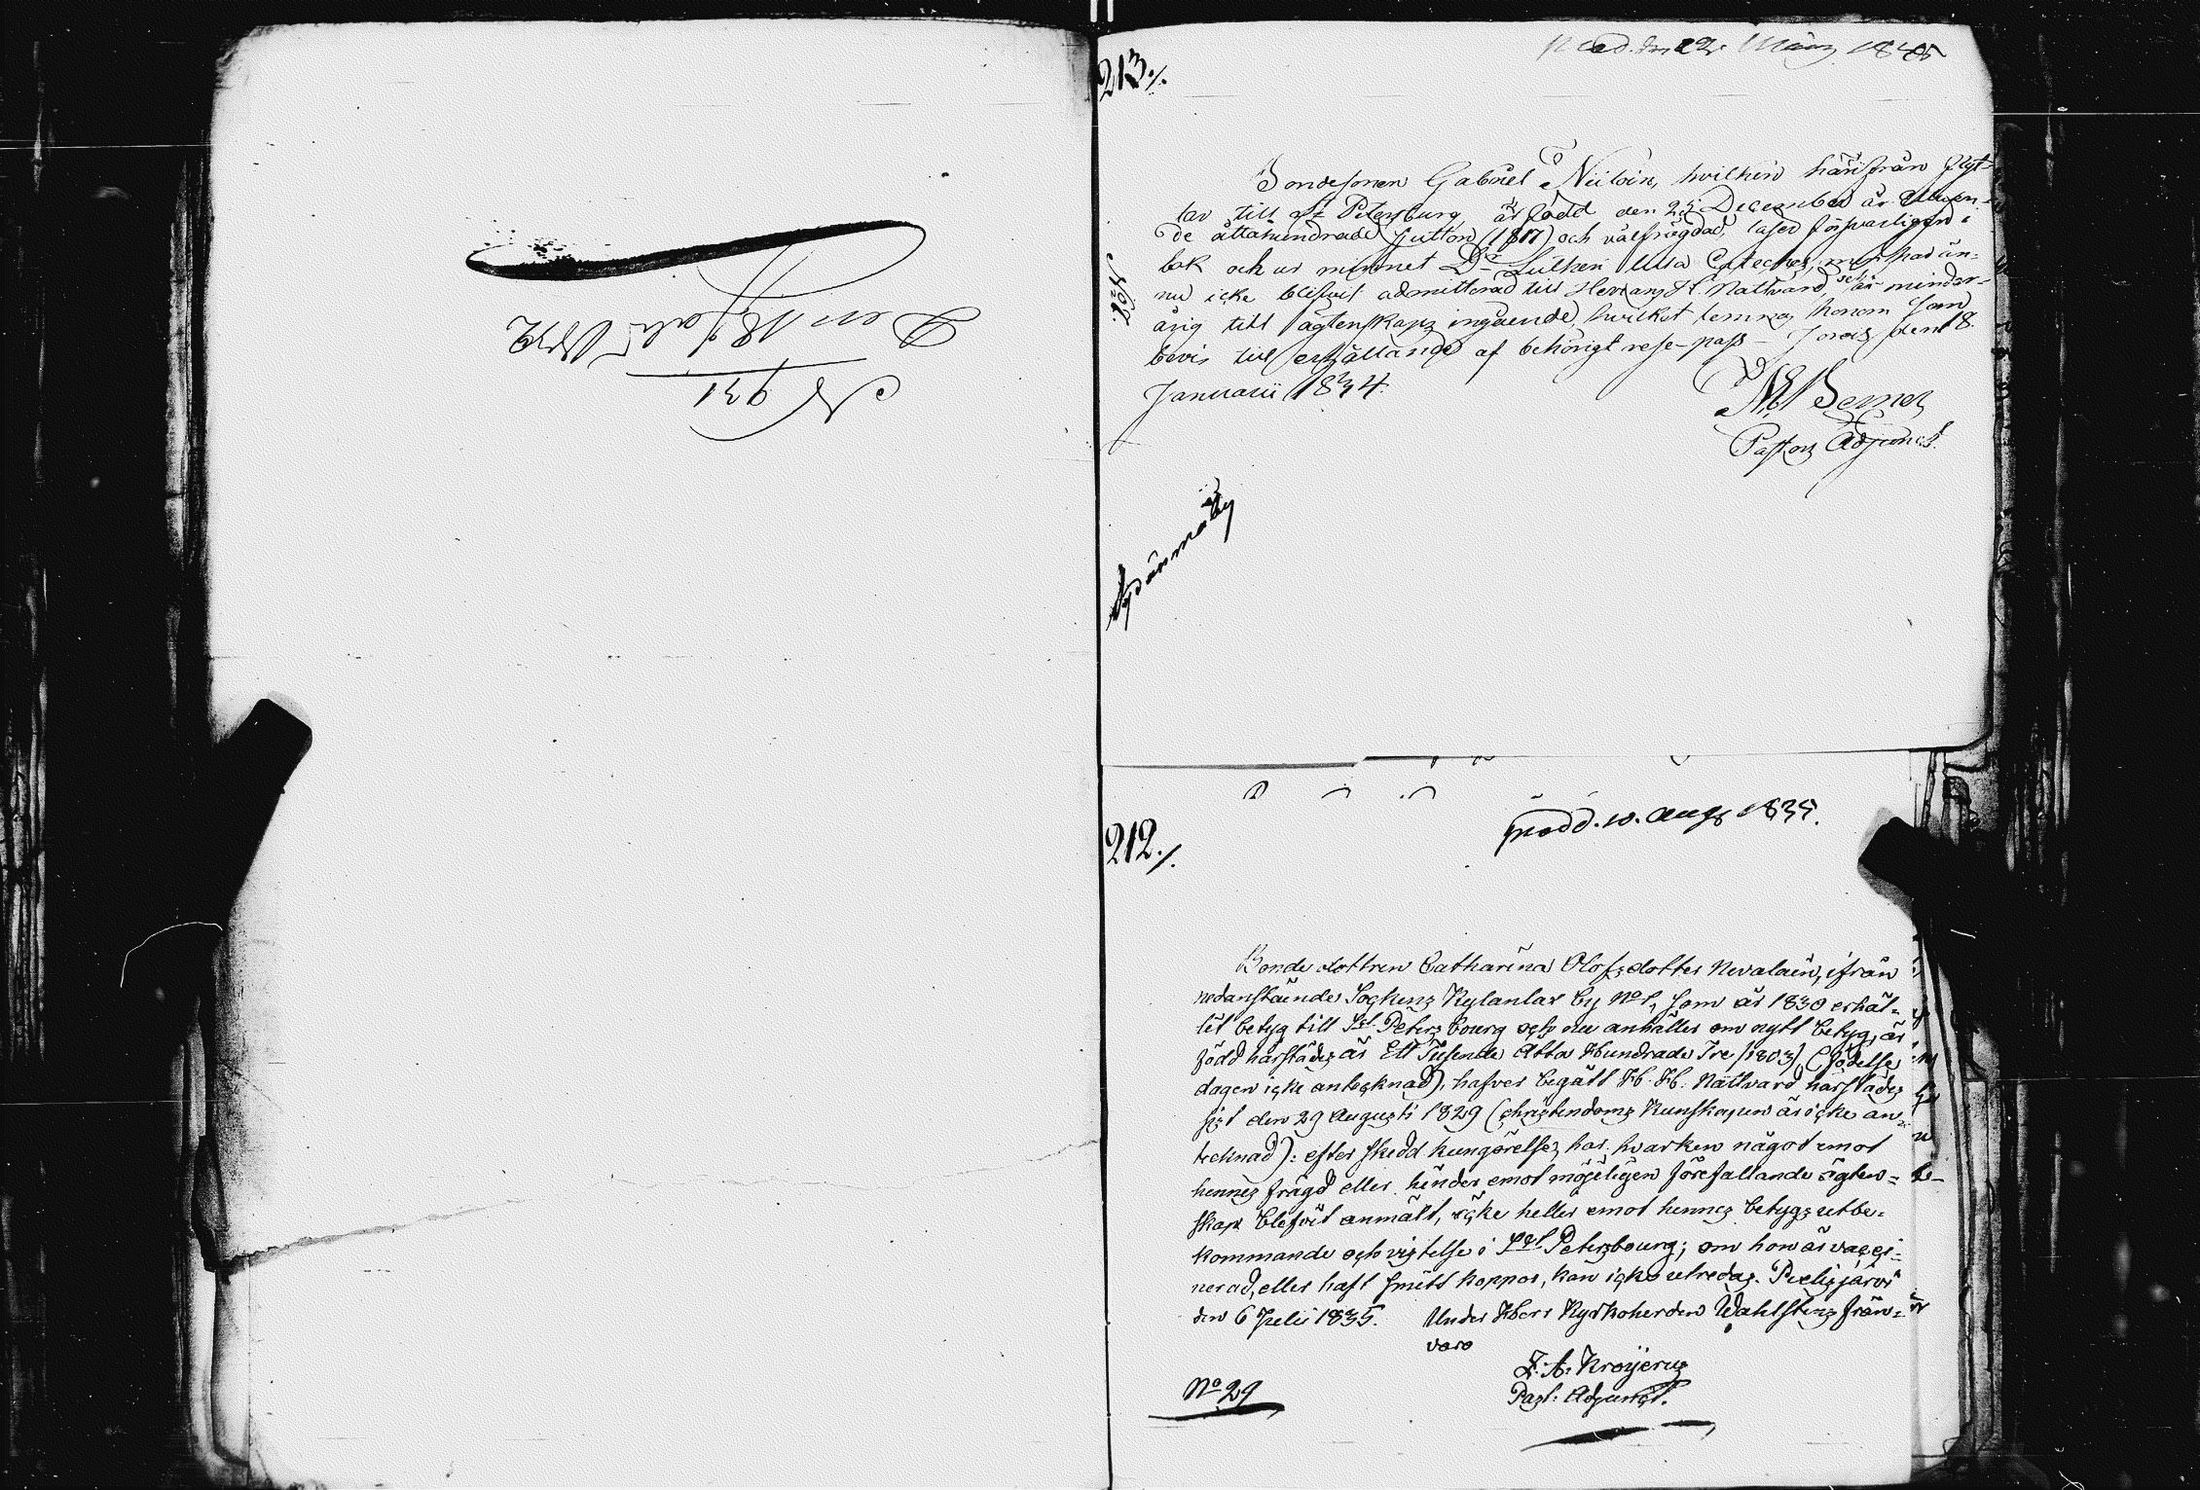 N 931
Den 18 Juli 1832
213./.
prod. den 22. März 1838
Bondesonen Gabriel Niiloin, hvilken härifrån flyt-
tar till St Petersburg, är född den 25 December år
de åttahundrade sjutton (1817) och välfrägdad, läser försvarligen i
bok och ur minnet Dr Lutheri lilla Cateches, men har än-
nu icke blifvit admitterad till Herrans H. Nattvard, och är minder-
årig till ägtenskaps ingående, hvilket lemnas honom som
bevis till erhållande af behörigt rese-pass. Jorois den 18.
Januarii 1834.
Pastors Adjunct.
212./.
prod. 10. Aug 1835.
Bonde dottren Catharina Olofsdotter Nevalain, ifrån
nedanstående Sockens Kylanlax by No 1, som år 1830 erhål-
lit betyg till Sct Petersbourg och nu anhåller om nytt betyg, är
född härstädes år Ett Tusende Åtta Hundrade Tre (1803) (födelse
dagen icke antecknad), hafver begått H. H. Nattvard härstädes
sist den 29 Augusti 1829 (christendoms Kunskapen är icke an-
tecknad): efter skedd kungörelse, har hvarken något emot
hennes frägd eller hinder emot möjeligen förefallande ägten-
skap blifvit anmält, icke heller emot hennes betygs utbe-
kommande och vistelse i Sct Petersbourg; om hon är vacci-
nerad, eller haft smitt koppor, kan icke utredas. Pielisjärvi
den 6 Julii 1835. Under Herr Kyrkoherden Wahlstens från-
varo
Z. A. Krojerus
Past: Adjunct.
No 29